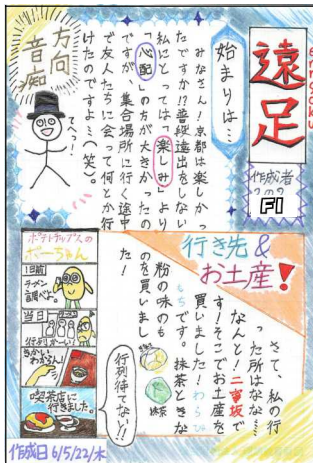 遠足
ensoku
作成者
FI
始まりは…
みなさん！京都は楽しかっ
たですか!?普段遠出をしない
私にとっては「楽しみ」より
「心配」の方が大きかったの
ですが、集合場所に行く途中
で友人たちに会って何とか行
けたのですよ…(笑)。
方向
音痴
てへっ!
行き先&
お土産！
さて、私の行
った所はなな…
なんと！二寧坂で
す！そこでお土産を
買いました！わらび
もちです。抹茶ときな
粉の味のも
のを買いまし
た！
抹茶
ポテトチップスの
ぽーちゃん
1日前
ラーメン
調べよ。
当日
行列ながい!
きかい
わからん!
喫茶店に
行きました。
行列待てないと!!
作成日 6/5/22/木